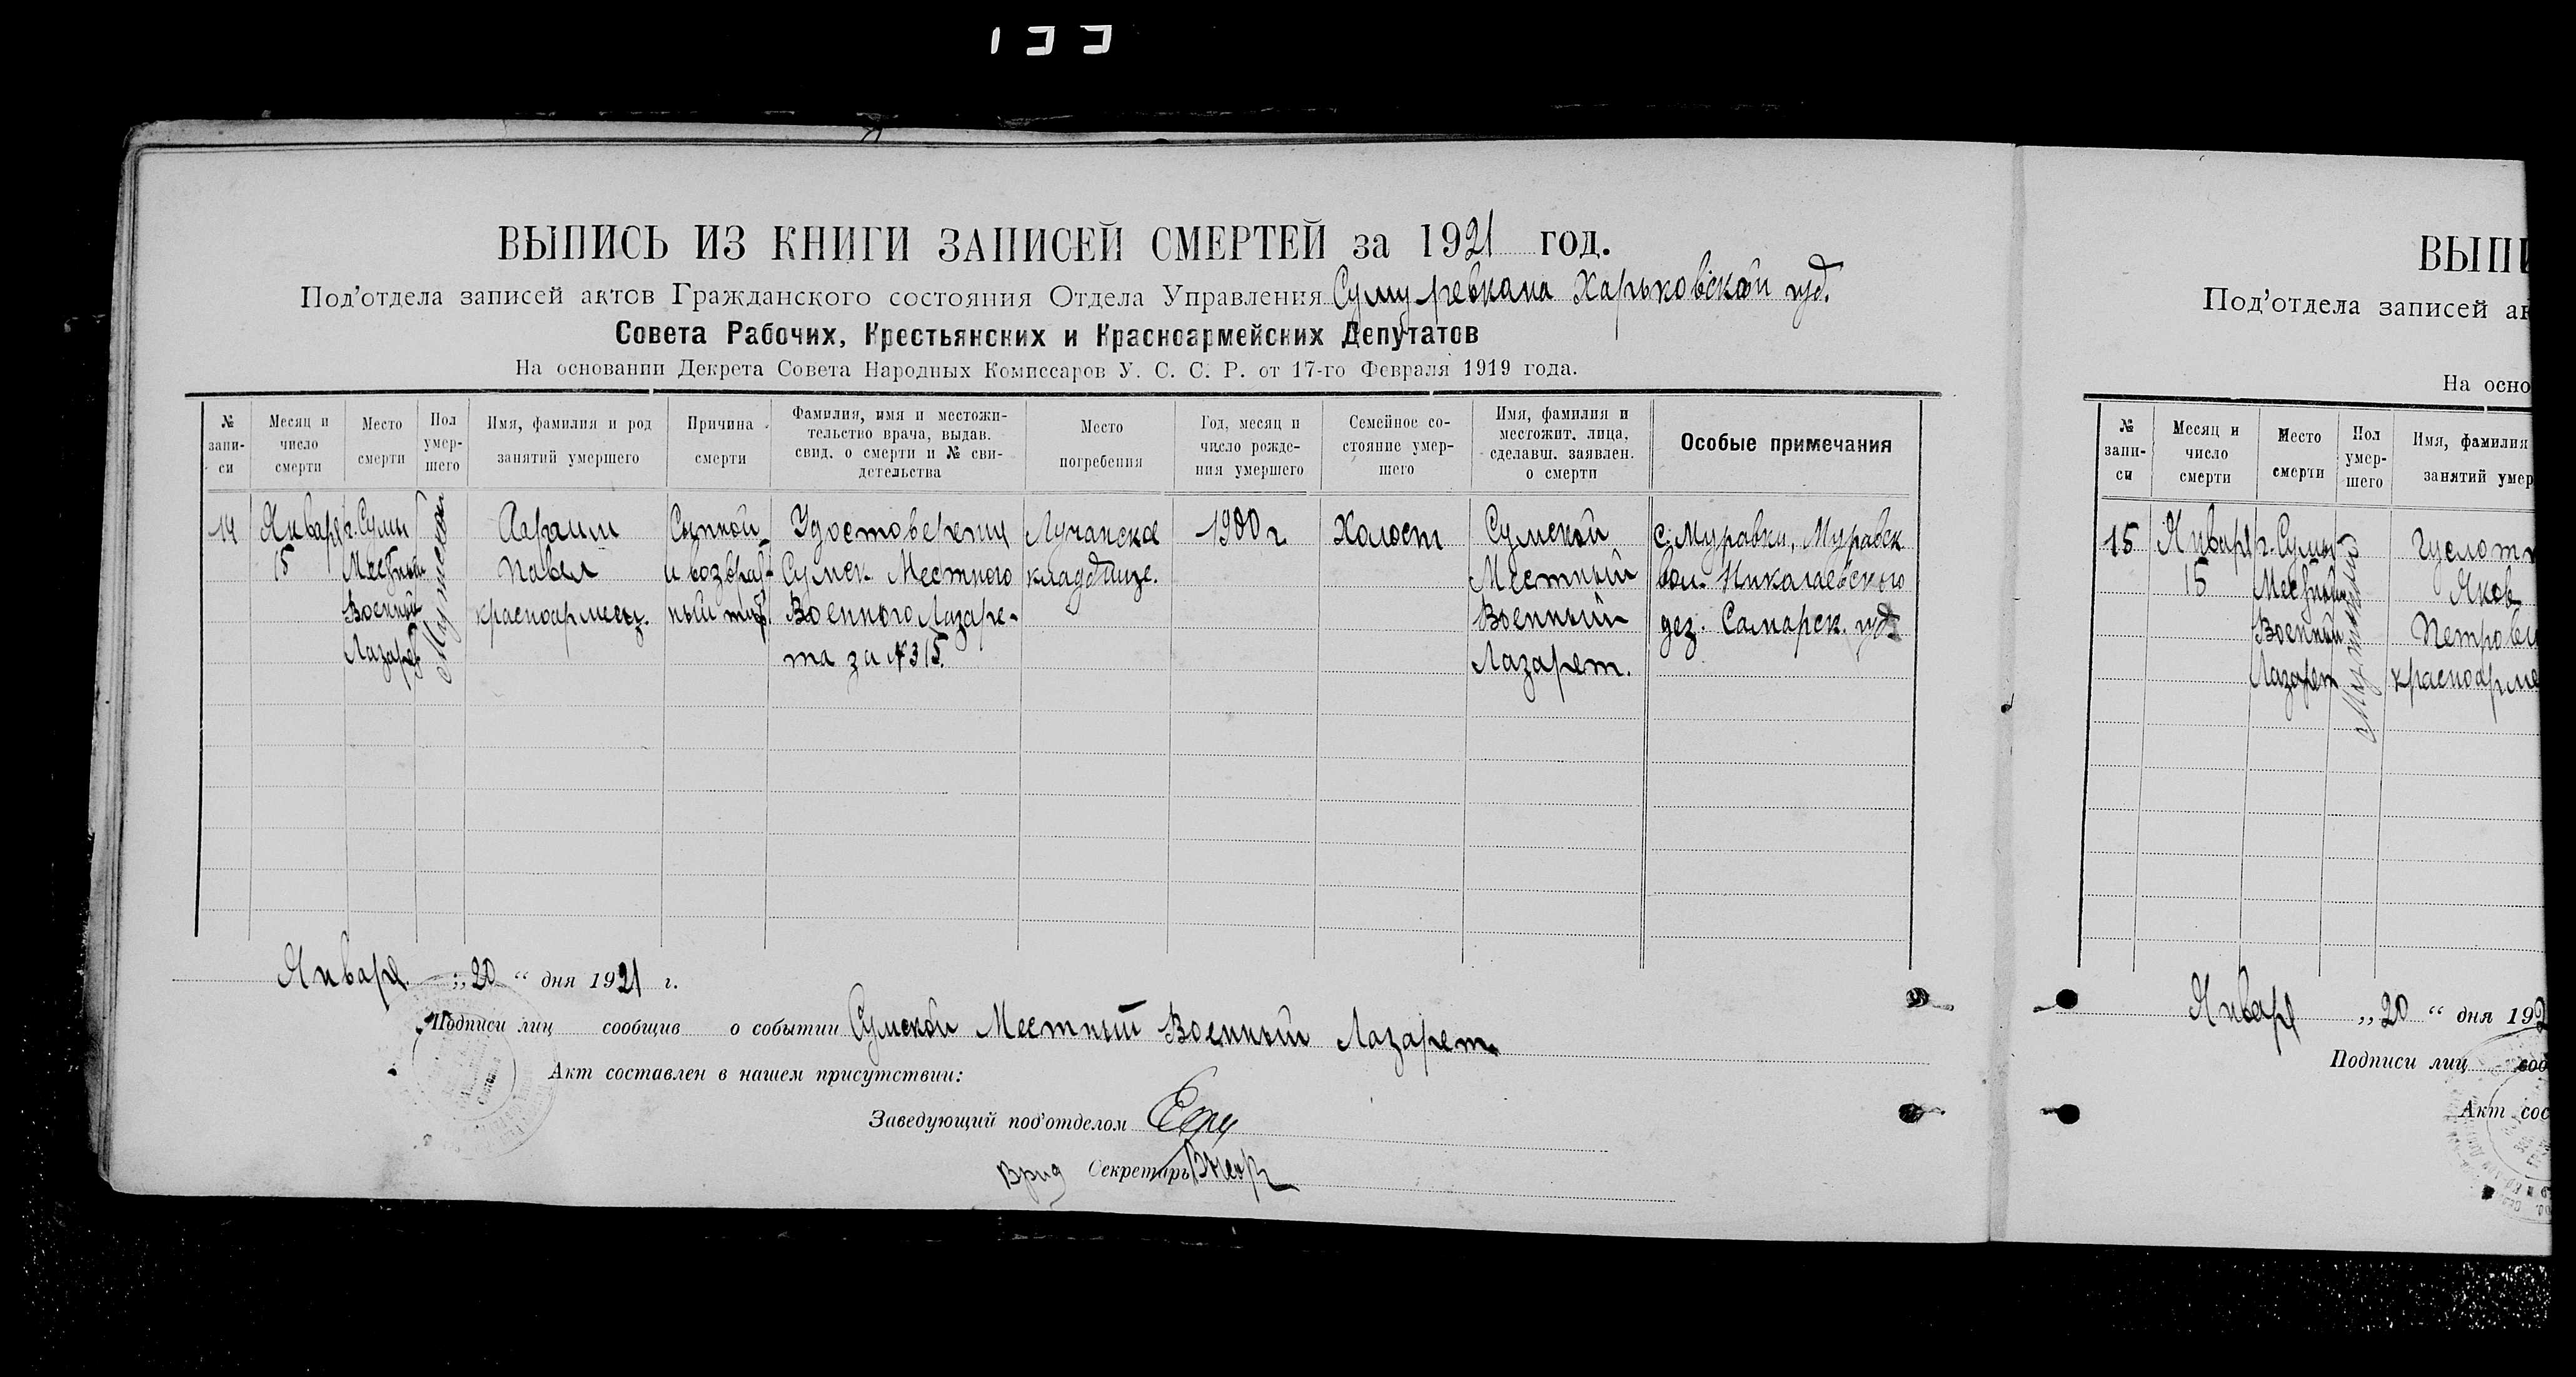 ВЫПИСЬ ИЗ КНИГИ ЗАПИСЕЙ СМЕРТЕЙ за 1921 год.
Под'отдела записей актов Гражданского состояния Отдела Управления Сумуревкома Харьковской губ.
Совета Рабочих, Крестьянских и Красноармейских Депутатов
На основании Декрета Совета Народных Комиссаров У. С. С. Р. от 17-го Февраля 1919 года.
№ запи-
си
Месяц и
число
смерти
Место
смерти
Пол
умер-
шего
Имя, фамилия и род
занятий умершего
Причина
смерти
Фамилия, имя и местожи-
тельство врача, выдав.
свид. о смерти и № сви-
детельства
Место
погребения
Год, месяц и
число рожде-
ния умершего
Семейное со-
стояние умер-
шего
Имя, фамилия и
местожит. лица,
сделавш. заявлен.
о смерти
Особые примечания
14
Января
15
г. Сумы
Местный
Военный
Лазарет
Мужской
Павел
красноармеец.
Сыпной
и возврат-
ный тиф.
Удостоверения
Сумск. Местного
Военного Лазаре-
та за № 315.
Лучанское
кладдище.
1900 г
Холост
Сумской
Местный
Военный
Лазарет.
с. Муравки, Муравск
вол. Николаевского
уез. Самарск. губ
Января „20“ дня 1921 г.
Подписи лиц сообщив о событии Сумской Местный Военный Лазарет
Акт составлен в нашем присутствии:
Заведующий под'отделом
Врид Секретарь
ВЫПИ
Под'отдела записей ак
На осно
№ запи-
си
Месяц и
число
смерти
Место
смерти
Пол
умер-
шего
Имя, фамилия
занятий умер
15
Января
15
г. Сумы
Местный
Военный
Лазарет
Мужской
Яков
Петрови
красноарме
Января „20“ дня 192
Подписи лиц соо
Акт сос